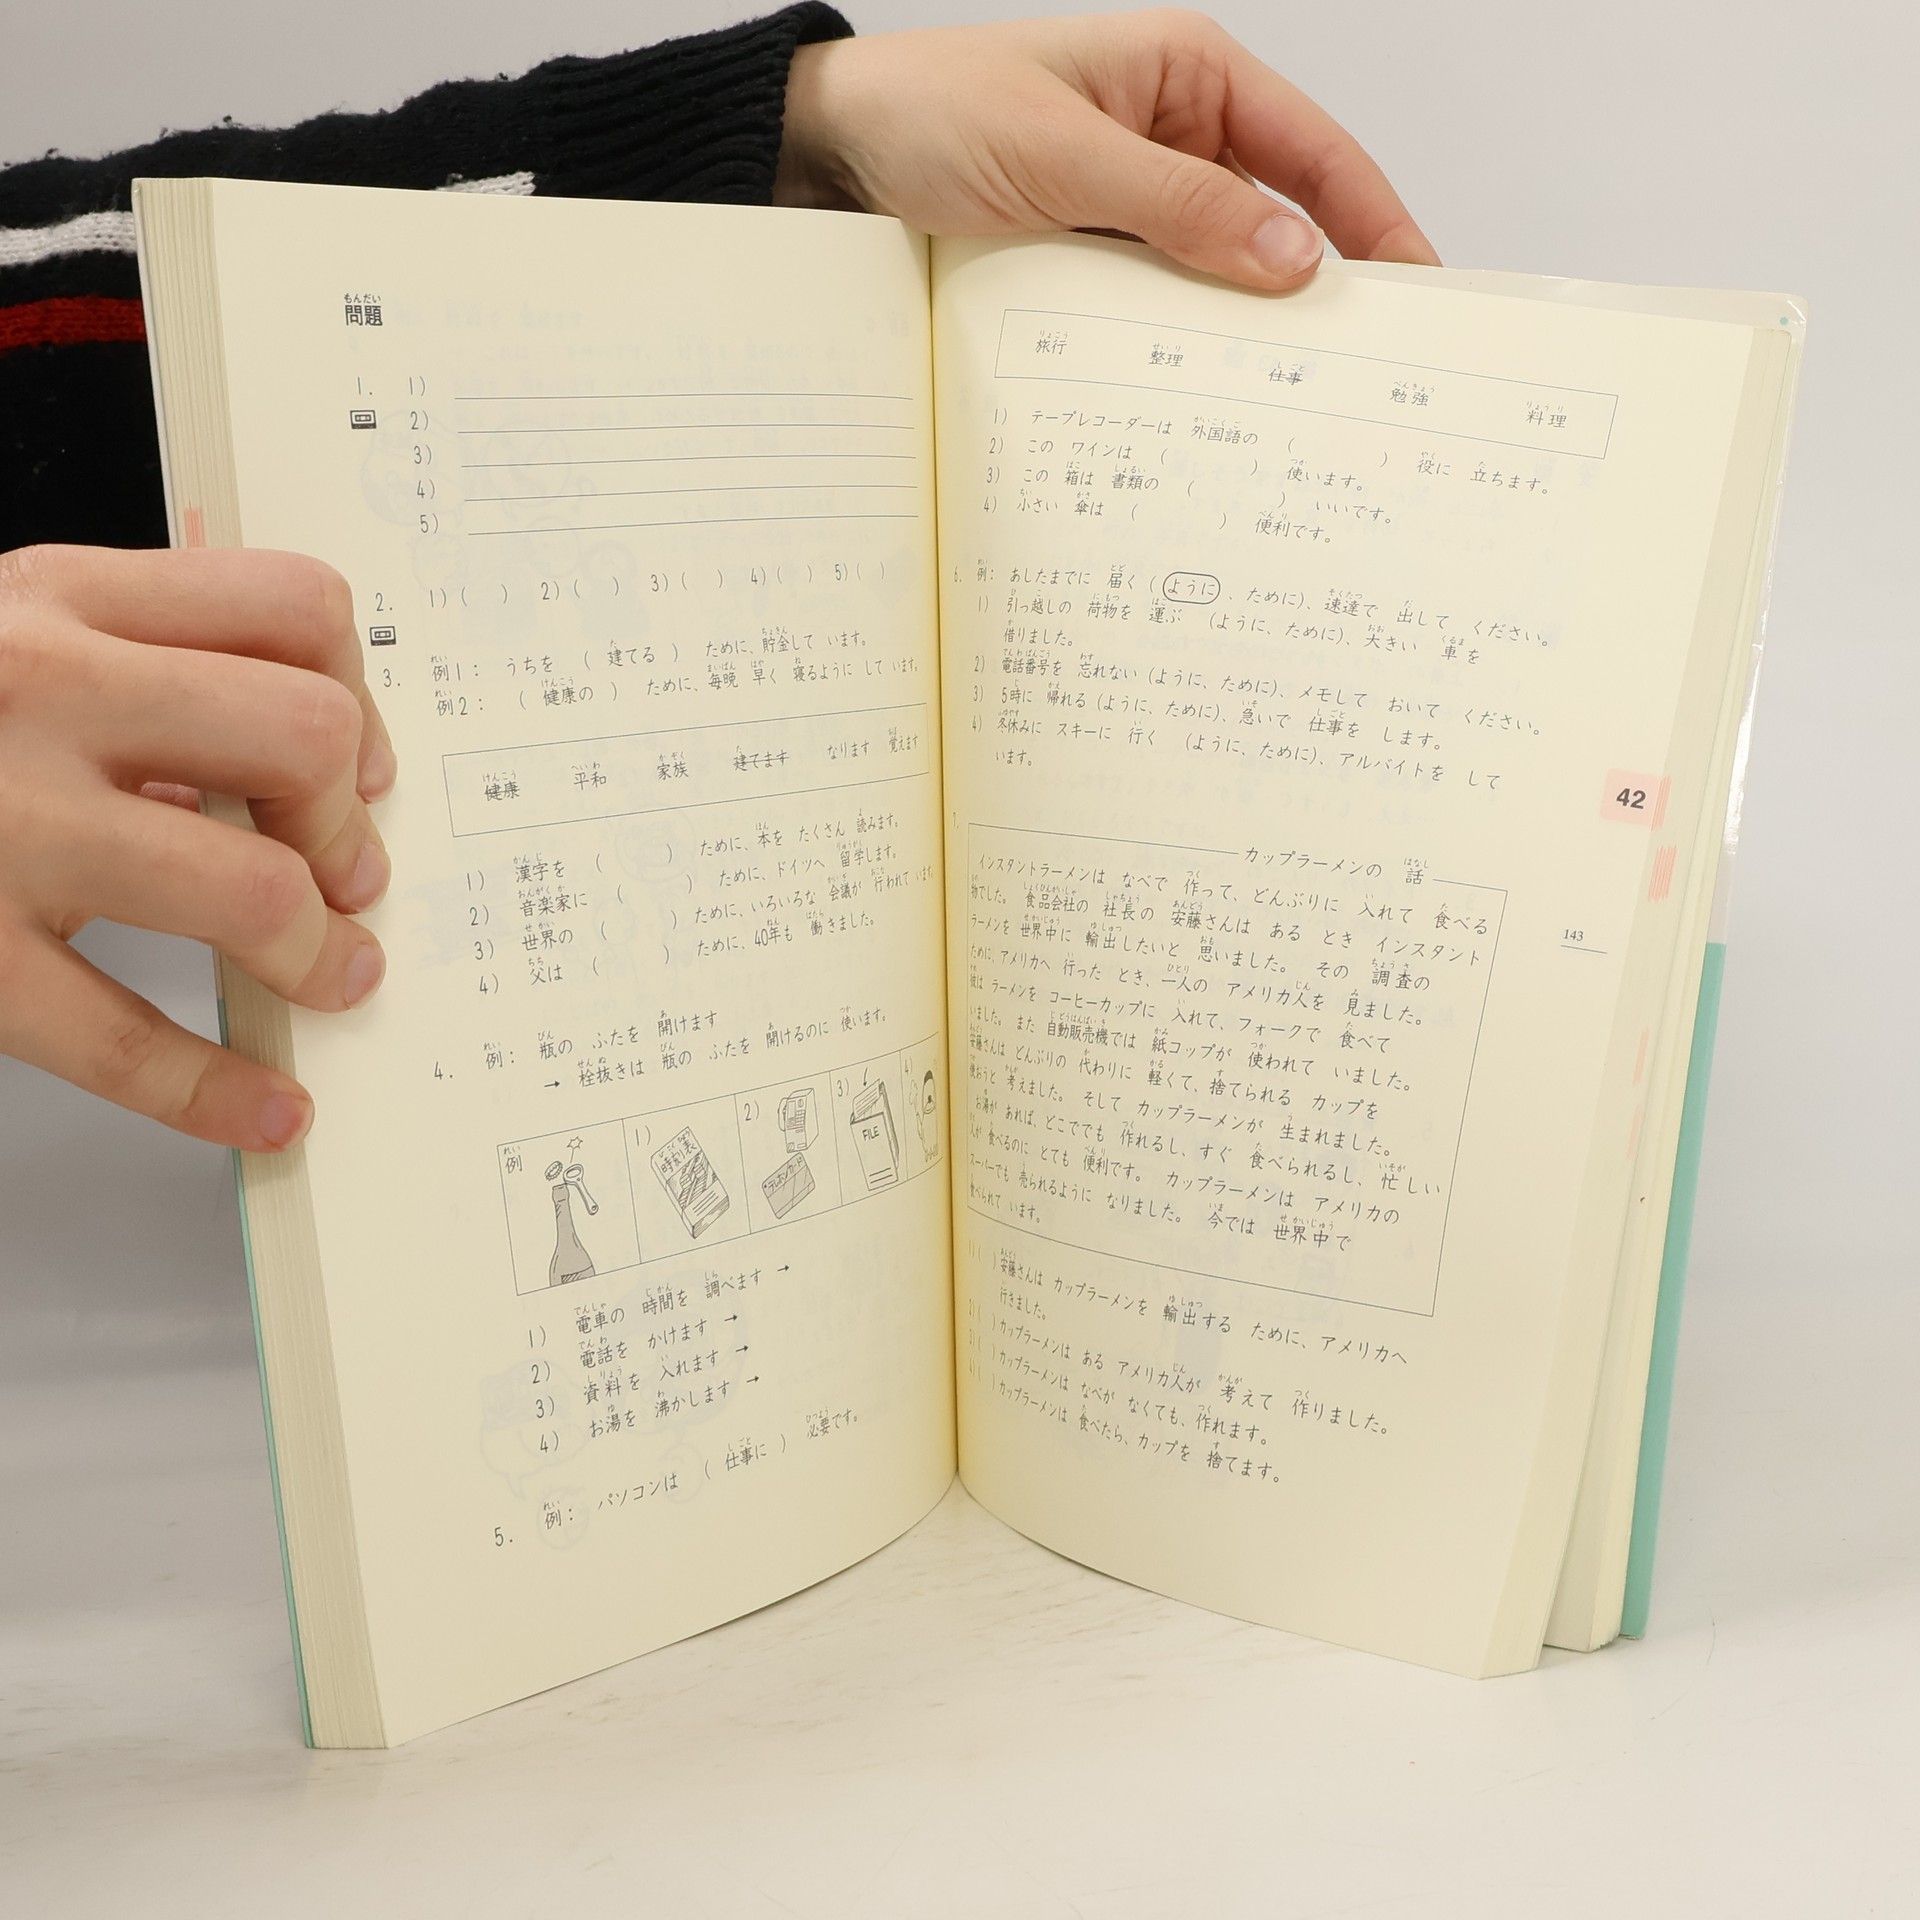 問題
1. 1)
2)
3)
4)
5)
2. 1)( ) 2)( ) 3)( ) 4)( ) 5)( )
3. 例1: うちを ( 建てる ) ために、貯金して います。
例2: ( 健康の ) ために、毎晩 早く 寝るように して います。
健康 平和 家族 建てます なります 覚えます
1) 漢字を ( ) ために、本を たくさん 読みます。
2) 音楽家に ( ) ために、ドイツへ 留学します。
3) 世界の ( ) ために、いろいろな 会議が 行われて います。
4) 父は ( ) ために、40年も 働きました。
4. 例: 瓶の ふたを 開けます
→ 栓抜きは 瓶の ふたを 開けるのに 使います。
例 1) 2) 3) 4)
時刻表
テレホンカード
FILE
1) 電車の 時間を 調べます →
2) 電話を かけます →
3) 資料を 入れます →
4) お湯を 沸かします →
5. 例: パソコンは ( 仕事に ) 必要です。
旅行 整理 仕事 勉強 料理
1) テープレコーダーは 外国語の ( ) 役に 立ちます。
2) この ワインは ( ) 使います。
3) この 箱は 書類の ( ) いいです。
4) 小さい 傘は ( ) 便利です。
6. 例: あしたまでに 届く (ように、ために)、速達で 出して ください。
1) 引っ越しの 荷物を 運ぶ (ように、ために)、大きい 車を
借りました。
2) 電話番号を 忘れない (ように、ために)、メモして おいて ください。
3) 5時に 帰れる (ように、ために)、急いで 仕事を します。
4) 冬休みに スキーに 行く (ように、ために)、アルバイトを して
います。
42
7.
カップラーメンの 話
インスタントラーメンは なべで 作って、どんぶりに 入れて 食べる
物でした。 食品会社の 社長の 安藤さんは ある とき インスタント
ラーメンを 世界中に 輸出したいと 思いました。 その 調査の
ために、アメリカへ 行った とき、一人の アメリカ人を 見ました。
彼は ラーメンを コーヒーカップに 入れて、フォークで 食べて
いました。 また 自動販売機では 紙コップが 使われて いました。
安藤さんは どんぶりの 代わりに 軽くて、捨てられる カップを
使おうと 考えました。 そして カップラーメンが 生まれました。
お湯が あれば、どこででも 作れるし、すぐ 食べられるし、忙しい
人が 食べるのに とても 便利です。 カップラーメンは アメリカの
スーパーでも 売られるように なりました。 今では 世界中で
食べられて います。
143
1)( ) 安藤さんは カップラーメンを 輸出する ために、アメリカへ
行きました。
2)( ) カップラーメンは ある アメリカ人が 考えて 作りました。
3)( ) カップラーメンは なべが なくても、作れます。
4)( ) カップラーメンは 食べたら、カップを 捨てます。